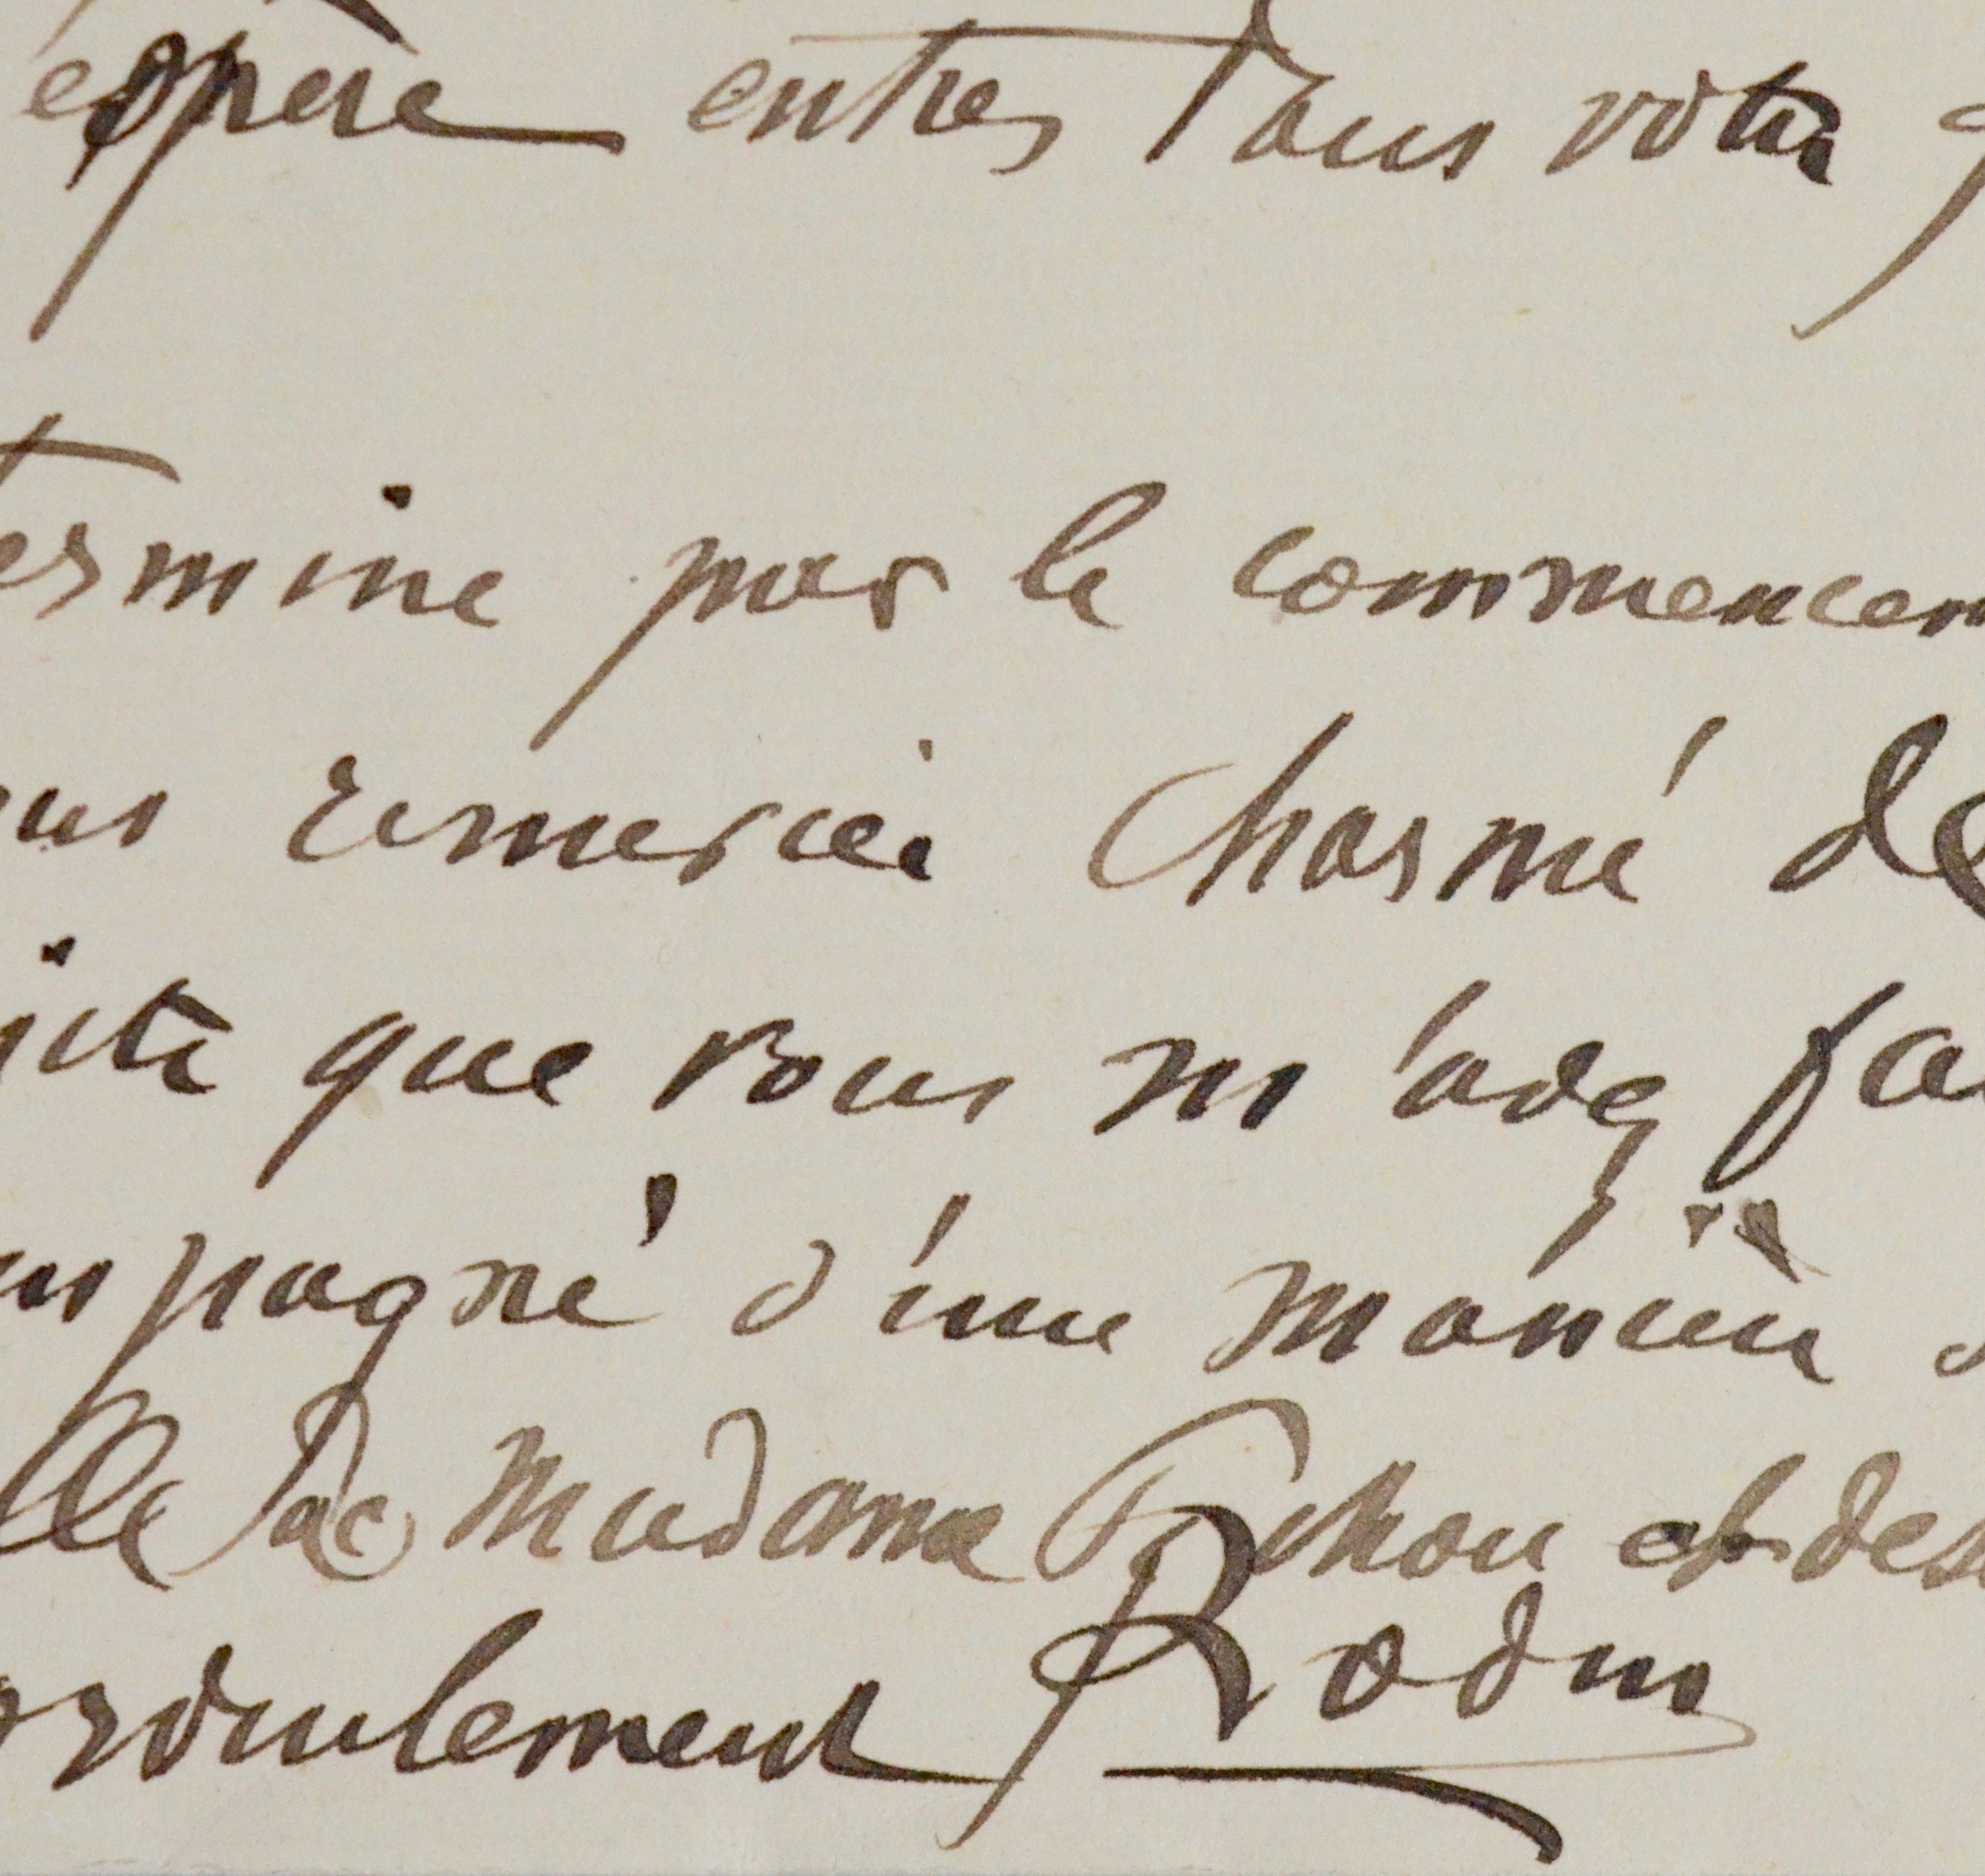 espère entrer dans votre
ermine par le commencem
ous remercie charmé de
que vous m'avez fa
mpagné d'une manière
lle de Madame et de
ordialement Rodin